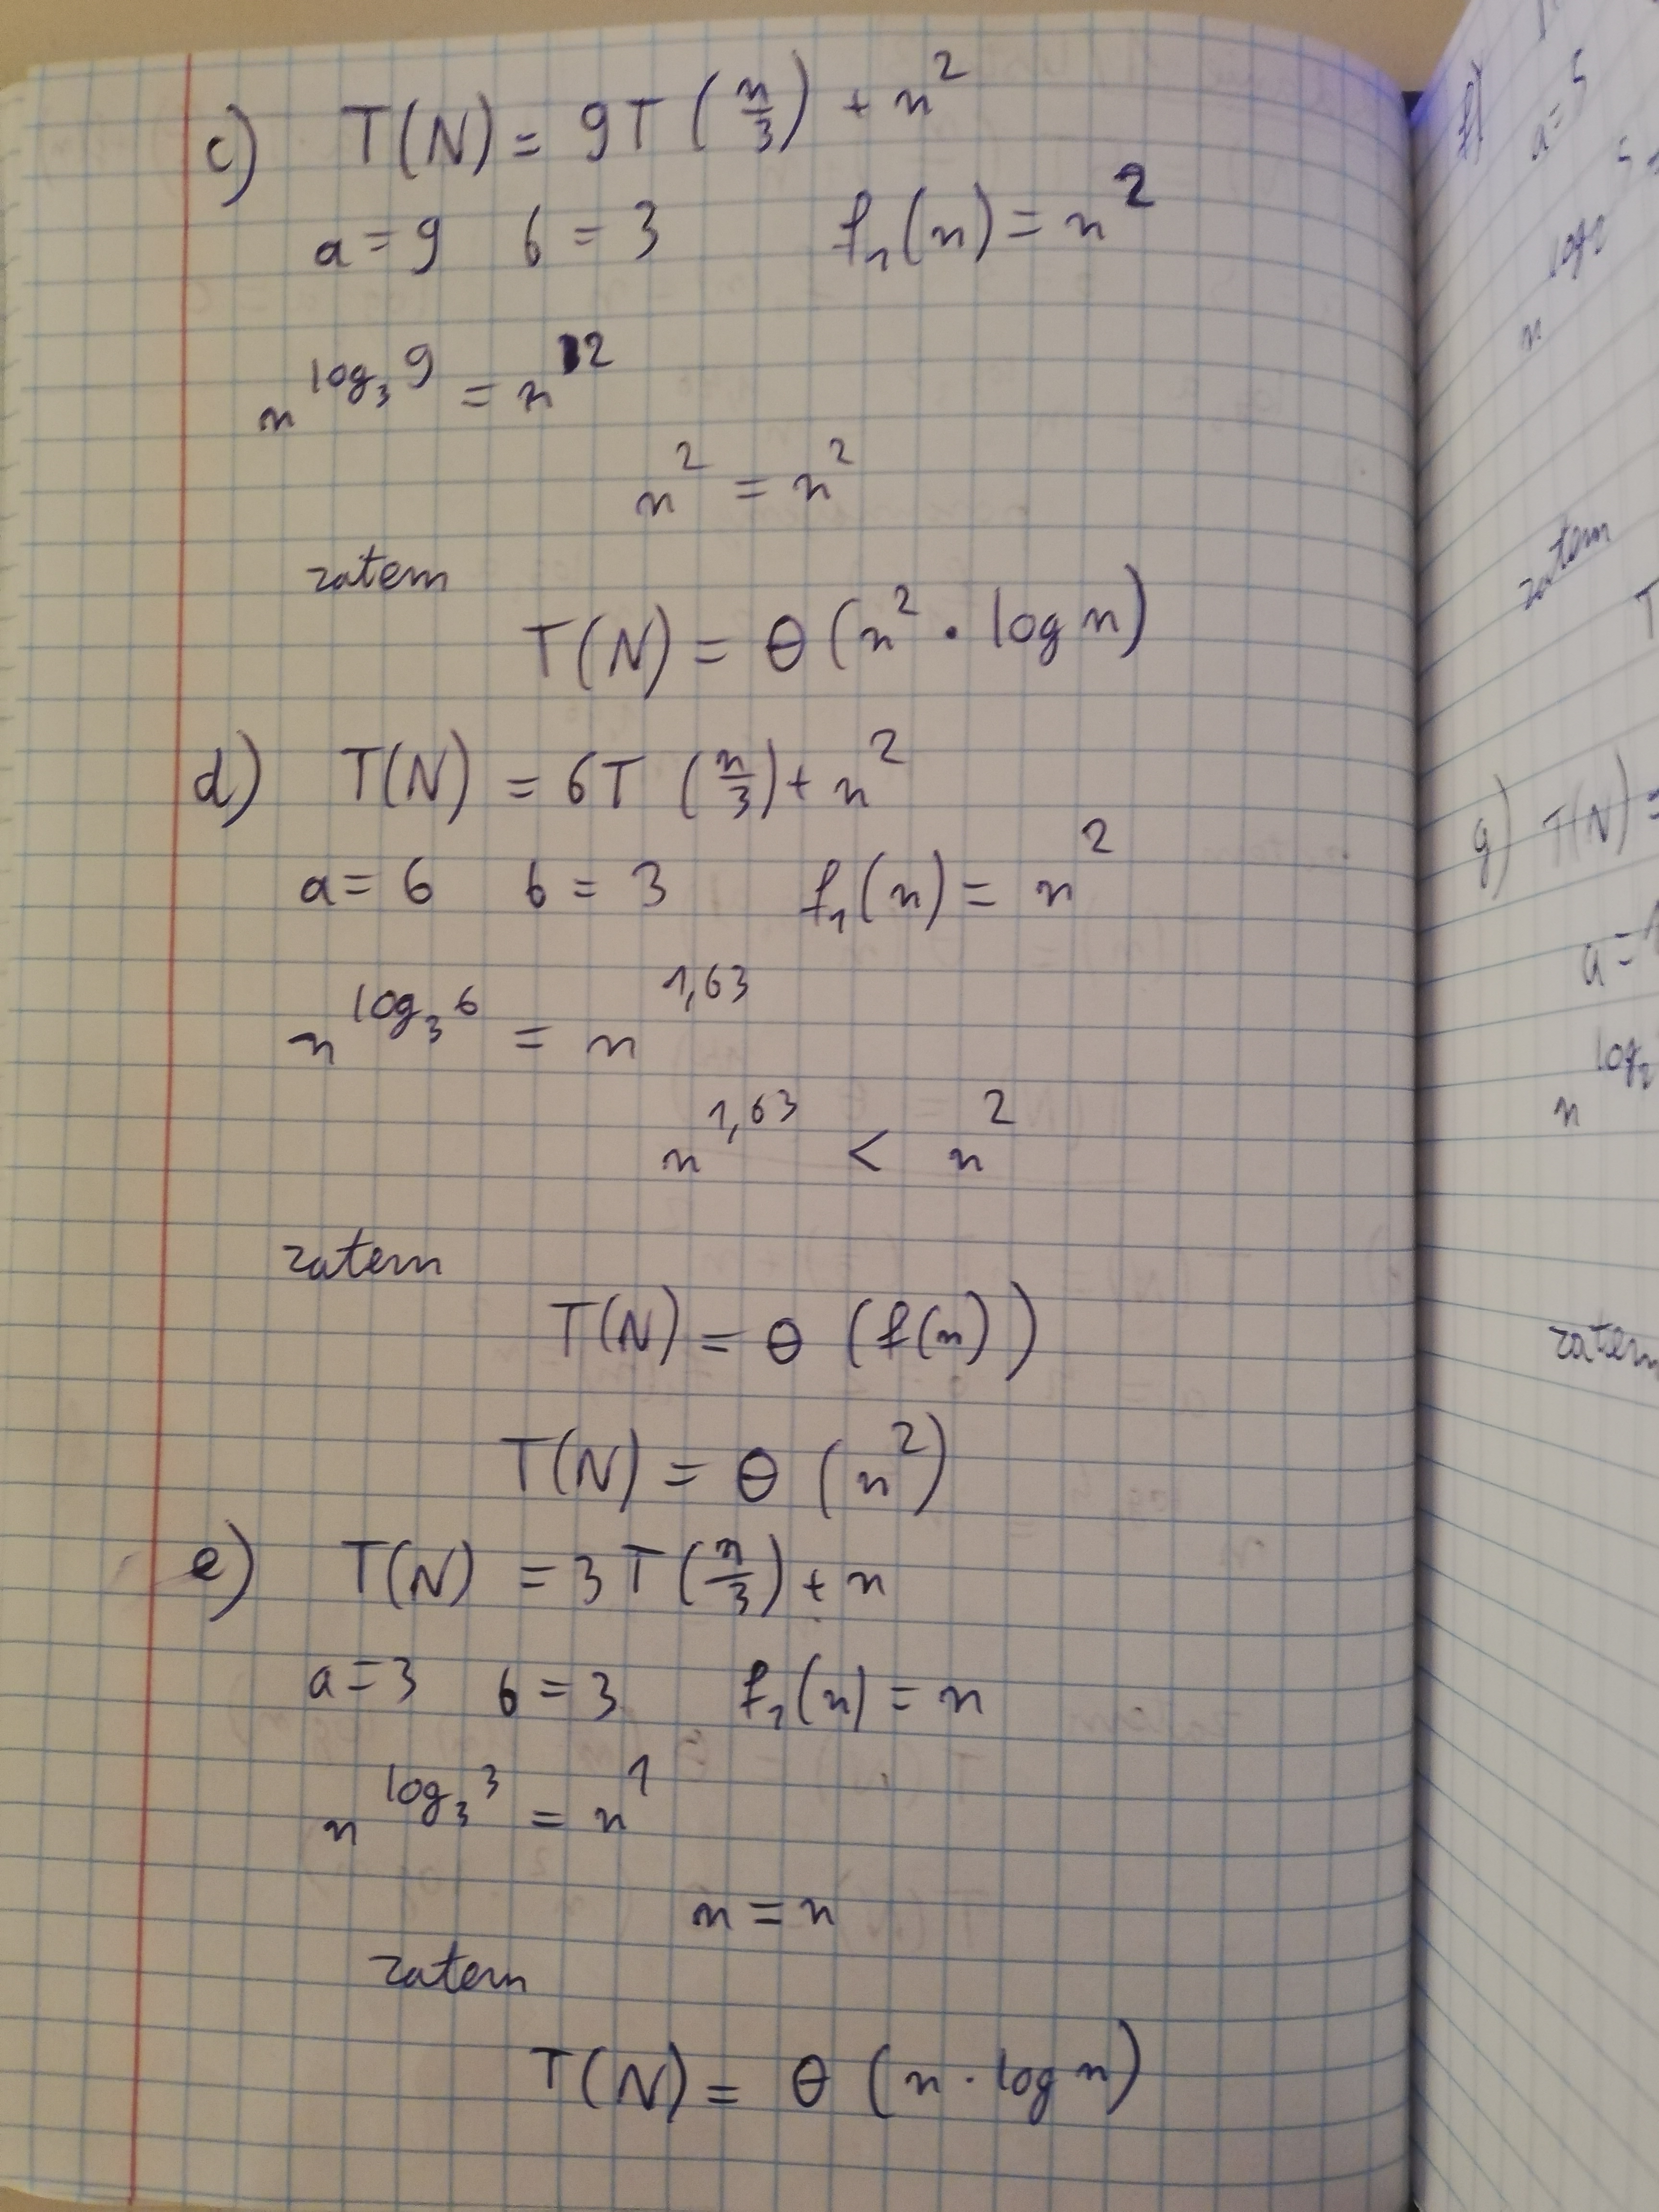 c) T(N) = 9T(n/3) + n²
a = 9 b = 3 f₁(n) = n²
n^(log₃9) = n²
n² = n²
zatem
T(N) = Θ(n² · log n)
d) T(N) = 6T(n/3) + n²
a = 6 b = 3 f₁(n) = n²
n^(log₃6) = n^(1,63)
n^(1,63) < n²
zatem
T(N) = Θ(f(n))
T(N) = Θ(n²)
e) T(N) = 3T(n/3) + n
a = 3 b = 3 f₁(n) = n
n^(log₃3) = n¹
n = n
zatem
T(N) = Θ(n · log n)
f)
a = 5
zatem
T
g) T(N) =
a =
n^(log₂
zatem